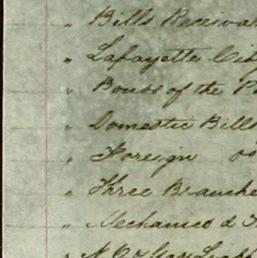 " Bills Receivab
" Lafayette
" Bonds of the
" Domestic Bills
" Foreign do
" Three Branche
" Mechanics &
" N. O. & Gas Light